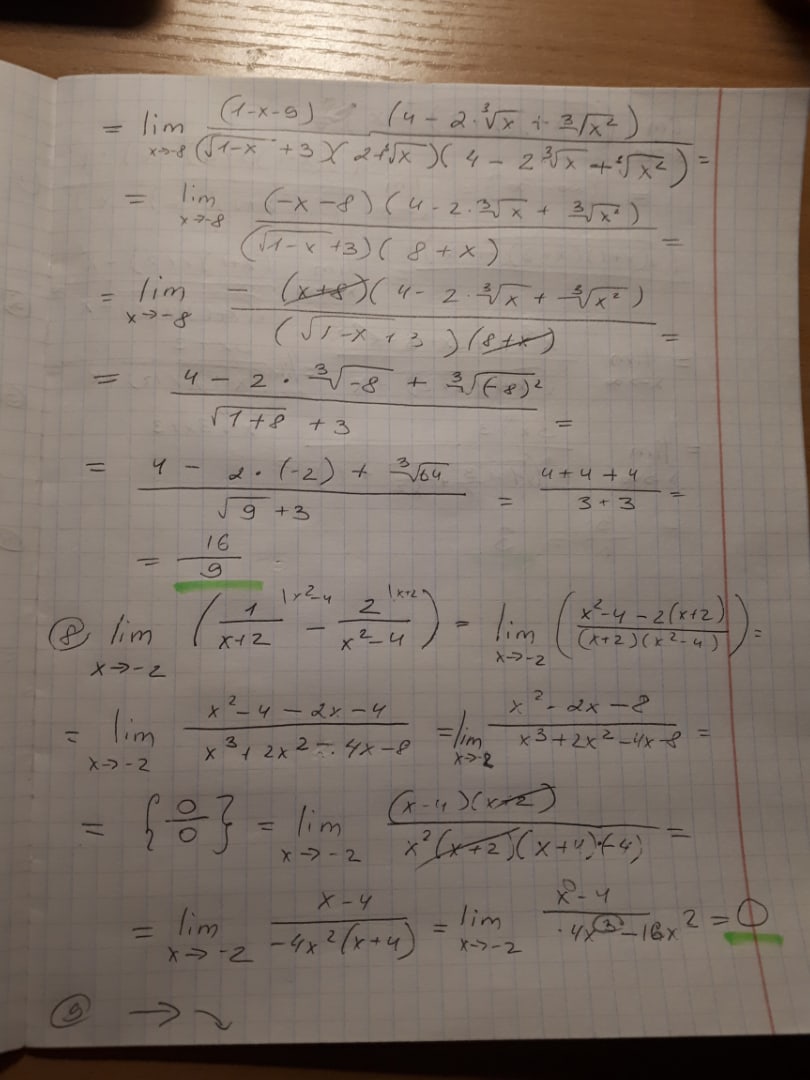 = lim x→-8 (1-x-9) (4 - 2·∛x + ∛x²) / (√1-x + 3)(2+∛x)(4 - 2∛x + ∛x²) =
= lim x→-8 (-x-8)(4-2·∛x + ∛x²) / (√1-x+3)(8+x) =
= lim x→-8 - (x+8)(4-2·∛x + ∛x²) / (√1-x+3)(8+x) =
= 4 - 2·∛-8 + ∛(-8)² / √1+8 + 3 =
= 4 - 2·(-2) + ∛64 / √9 + 3 = 4+4+4 / 3+3 =
= 16/9
⑧ lim x→-2 (1/x+2 |x²-4 - 2/x²-4 |x+2) = lim x→-2 (x²-4-2(x+2) / (x+2)(x²-4)) =
= lim x→-2 x²-4-2x-4 / x³+2x²-4x-8 = lim x→-2 x²-2x-8 / x³+2x²-4x-8 =
= {0/0} = lim x→-2 (x-4)(x+2) / x²(x+2)(x+4)(-4) =
= lim x→-2 x-4 / -4x²(x+4) = lim x→-2 x-4 / -4x³-16x² = 0
⑨ →